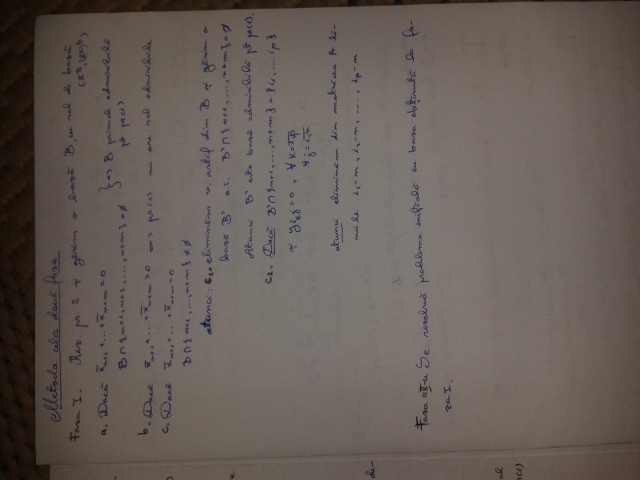 Metoda celor două faze
Faza I. Rez. pr. 2 și găsim o bază B, cu sol. de bază
a. Dacă x̄n+1 + ... + x̄n+m = 0
B ∩ {n+1, n+2, ..., n+m} = ∅ } => B primal admisibilă
pt pr(1)
b. Dacă x̄n+1 + ... + x̄n+m > 0 => pr(1) nu are sol admisibile
c. Dacă x̄n+1 + ... + x̄n+m = 0
B ∩ {n+1, ..., n+m} ≠ ∅
atunci: c1. eliminăm v. artif din B și găsim o
bază B' a.î. B' ∩ {n+1, ..., n+m} = ∅
Atunci B' este bază admisibilă pt pr(1).
c2. Dacă B' ∩ {n+1, ..., n+m} = {i1, ... ip}
și yikj = 0, ∀ k=1,p
∀ j=1,n
atunci eliminăm din matricea A li-
niile i1-n, i2-n, ..., ip-n
Faza a II-a Se rezolvă problema inițială cu baza obținută la fa-
za I.
de-